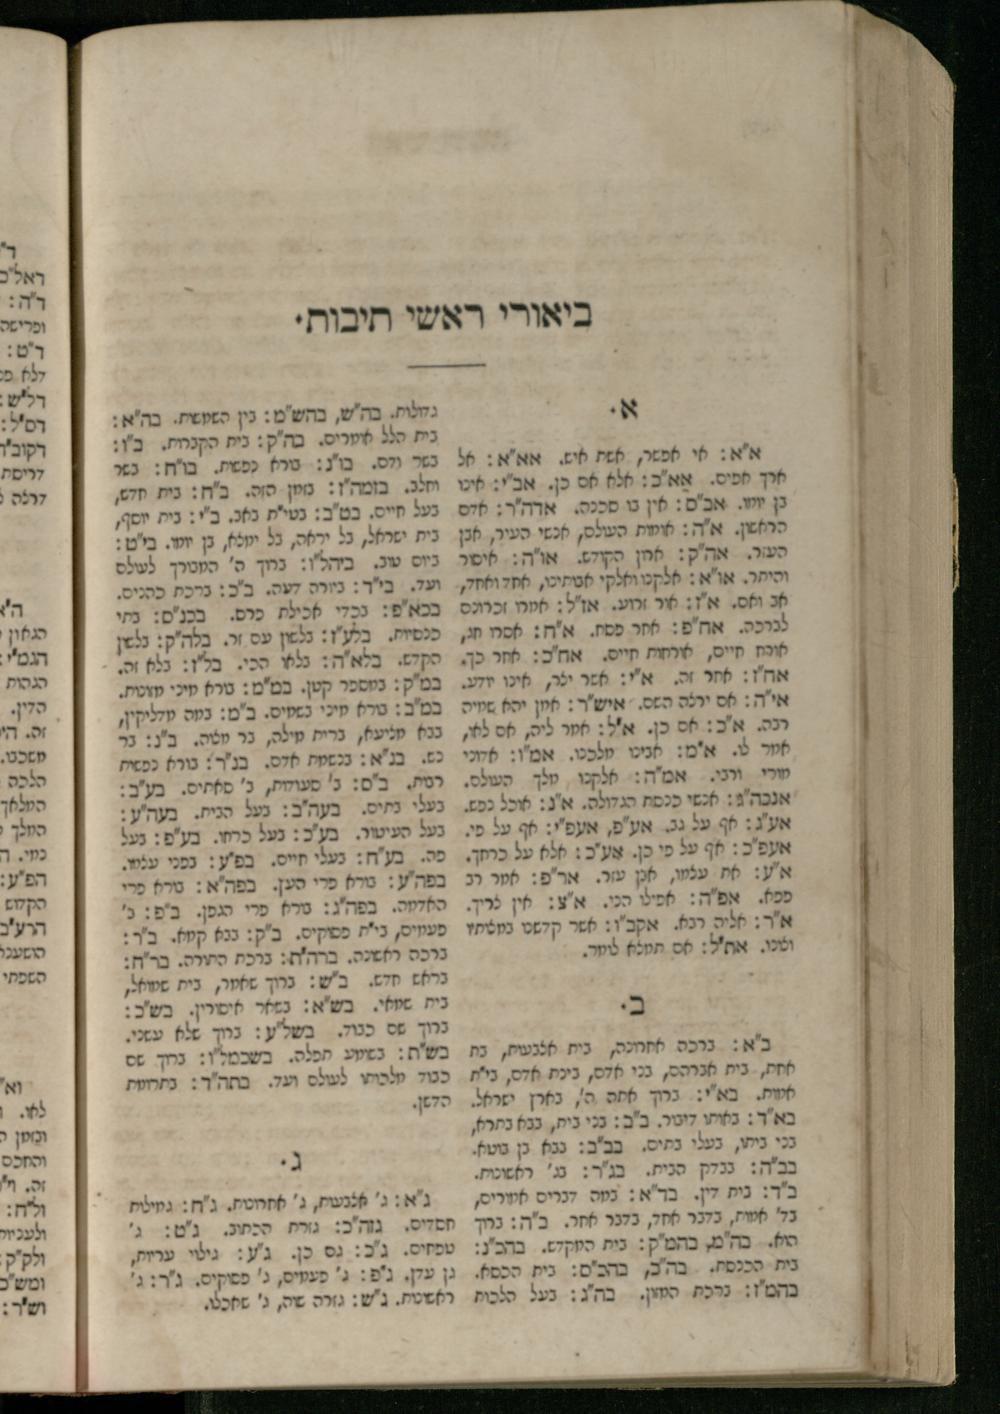 ביאורי ראשי תיבות.
א.
א"א: אי אפשר, אשת איש. אא"א: אל
ארך אפים. אא"כ: אלא אם כן. אב"י: אינו
בן יומו. אב"ם: אין בו סכנה. אדה"ר: אדם
הראשון. א"ה: אומות העולם, אנשי העיר, אבן
העזר. אה"ק: ארון הקודש. או"ה: איסור
והיתר. או"א: אלקנו ואלקי אבותינו, אחד ואחד,
אב ואם. א"ז: אור זרוע. אז"ל: אמרו זכרונם
לברכה. אח"פ: אחר פסח. א"ח: אסרו חג,
אורח חיים, אורחות חיים. אח"כ: אחר כך.
אח"ז: אחר זה. א"י: אשר יצר, אינו יודע.
אי"ה: אם ירצה השם. איש"ר: אמן יהא שמיה
רבה. א"כ: אם כן. א"ל: אמר ליה, אם לאו,
אמר לו. א"מ: אבינו מלכנו. אמ"ו: אדוני
מורי ורבי. אמ"ה: אלקנו מלך העולם.
אנכה"ג: אנשי כנסת הגדולה. א"נ: אוכל נפש.
אע"ג: אף על גב. אע"פ, אעפ"י: אף על פי.
אעפ"כ: אף על פי כן. אע"כ: אלא על כרחך.
א"ע: את עצמו, אבן עזר. אר"פ: אמר רב
פפא. אפ"ה: אפילו הכי. א"צ: אין צריך.
א"ר: אליה רבא. אקב"ו: אשר קדשנו במצותיו
וצונו. את"ל: אם תמצא לומר.
ב.
ב"א: ברכה אחרונה, בית אצבעות, בת
אחת, בית אברהם, בני אדם, בינת אדם, בי"ת
אמות. בא"י: ברוך אתה ה', בארץ ישראל.
בא"ד: באותו דיבור. ב"ב: בני בית, בבא בתרא,
בני ביתו, בעלי בתים. בב"ב: בבא בן בוטא.
בב"ה: בבדק הבית. בג"ר: בג' ראשונות.
ב"ד: בית דין. בד"א: במה דברים אמורים,
בד' אמות, בדבר אחד, בדבר אחר. ב"ה: ברוך
הוא. בה"מ, בהמ"ק: בית המקדש. בהכ"נ:
בית הכנסת. בה"כ, בהכ"ס: בית הכסא.
בהמ"ז: ברכת המזון. בה"ג: בעל הלכות
גדולות. בה"ש, בהש"מ: בין השמשות. בה"א:
בית הלל אומרים. בה"ק: בית הקברות. ב"ו:
בשר ודם. בו"נ: בורא נפשות. בו"ח: בשר
וחלב. בזמה"ז: בזמן הזה. ב"ח: בית חדש,
בעל חיים. בט"ב: בטי"ת באב. ב"י: בית יוסף,
בית ישראל, בל יראה, בל ימצא, בן יומו. בי"ט:
ביום טוב. ביהל"ו: ברוך ה' המבורך לעולם
ועד. בי"ד: ביורה דעה. ב"כ: ברכת כהנים.
בכא"פ: בכדי אכילת פרס. בכנ"ם: בתי
כנסיות. בלע"ז: בלשון עם זר. בלה"ק: בלשון
הקדש. בלא"ה: בלאו הכי. בל"ז: בלא זה.
במ"ק: במספר קטן. במ"מ: בורא מיני מזונות.
במ"ב: בורא מיני בשמים. ב"מ: במה מדליקין,
בבא מציעא, ברית מילה, בר מצוה. ב"נ: בר
נש. בנ"א: בנשמת אדם. בנ"ר: בורא נפשות
רבות. ב"ס: ב' סעודות, ב' סאתים. בע"ב:
בעלי בתים. בעה"ב: בעל הבית. בעה"ע:
בעל העיטור. בע"כ: בעל כרחו. בע"פ: בעל
פה. בע"ח: בעלי חיים. בפ"ע: בפני עצמו.
בפה"ע: בורא פרי העץ. בפה"א: בורא פרי
האדמה. בפה"ג: בורא פרי הגפן. ב"פ: ב'
פעמים, בי"ת פסוקים. ב"ק: בבא קמא. ב"ר:
ברכה ראשונה. ברה"ת: ברכת התורה. בר"ח:
בראש חדש. ב"ש: ברוך שאמר, בית שמואל,
בית שמאי. בש"א: בשאר איסורין. בש"כ:
ברוך שם כבוד. בשל"ע: ברוך שלא עשני.
בש"ת: בשומע תפלה. בשכמל"ו: ברוך שם
כבוד מלכותו לעולם ועד. בתה"ד: בתרומת
הדשן.
ג.
ג"א: ג' אצבעות, ג' אחרונות. ג"ח: גמילות
חסדים. גזה"כ: גזרת הכתוב. ג"ט: ג'
טפחים. ג"כ: גם כן. ג"ע: גילוי עריות,
גן עדן. ג"פ: ג' פעמים, ג' פסוקים. ג"ר: ג'
ראשונות. ג"ש: גזרה שוה, ג' שאכלו.